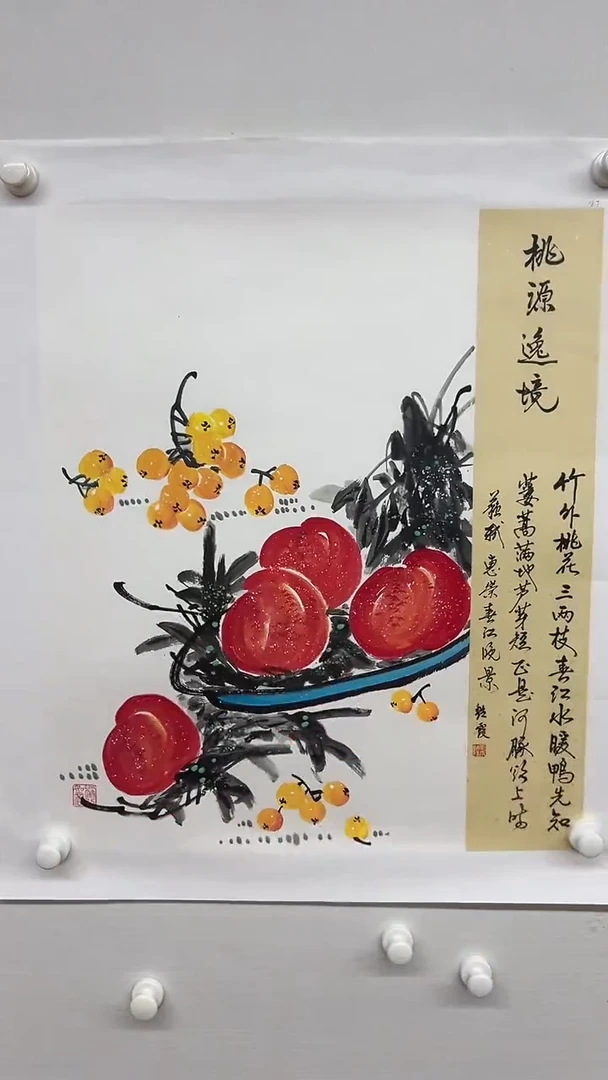 桃源逸境
竹外桃花三两枝春江水暖鴨先知
蔞蒿满地芦芽短正是河豚欲上时
蘇轼 惠崇春江晚景
霞